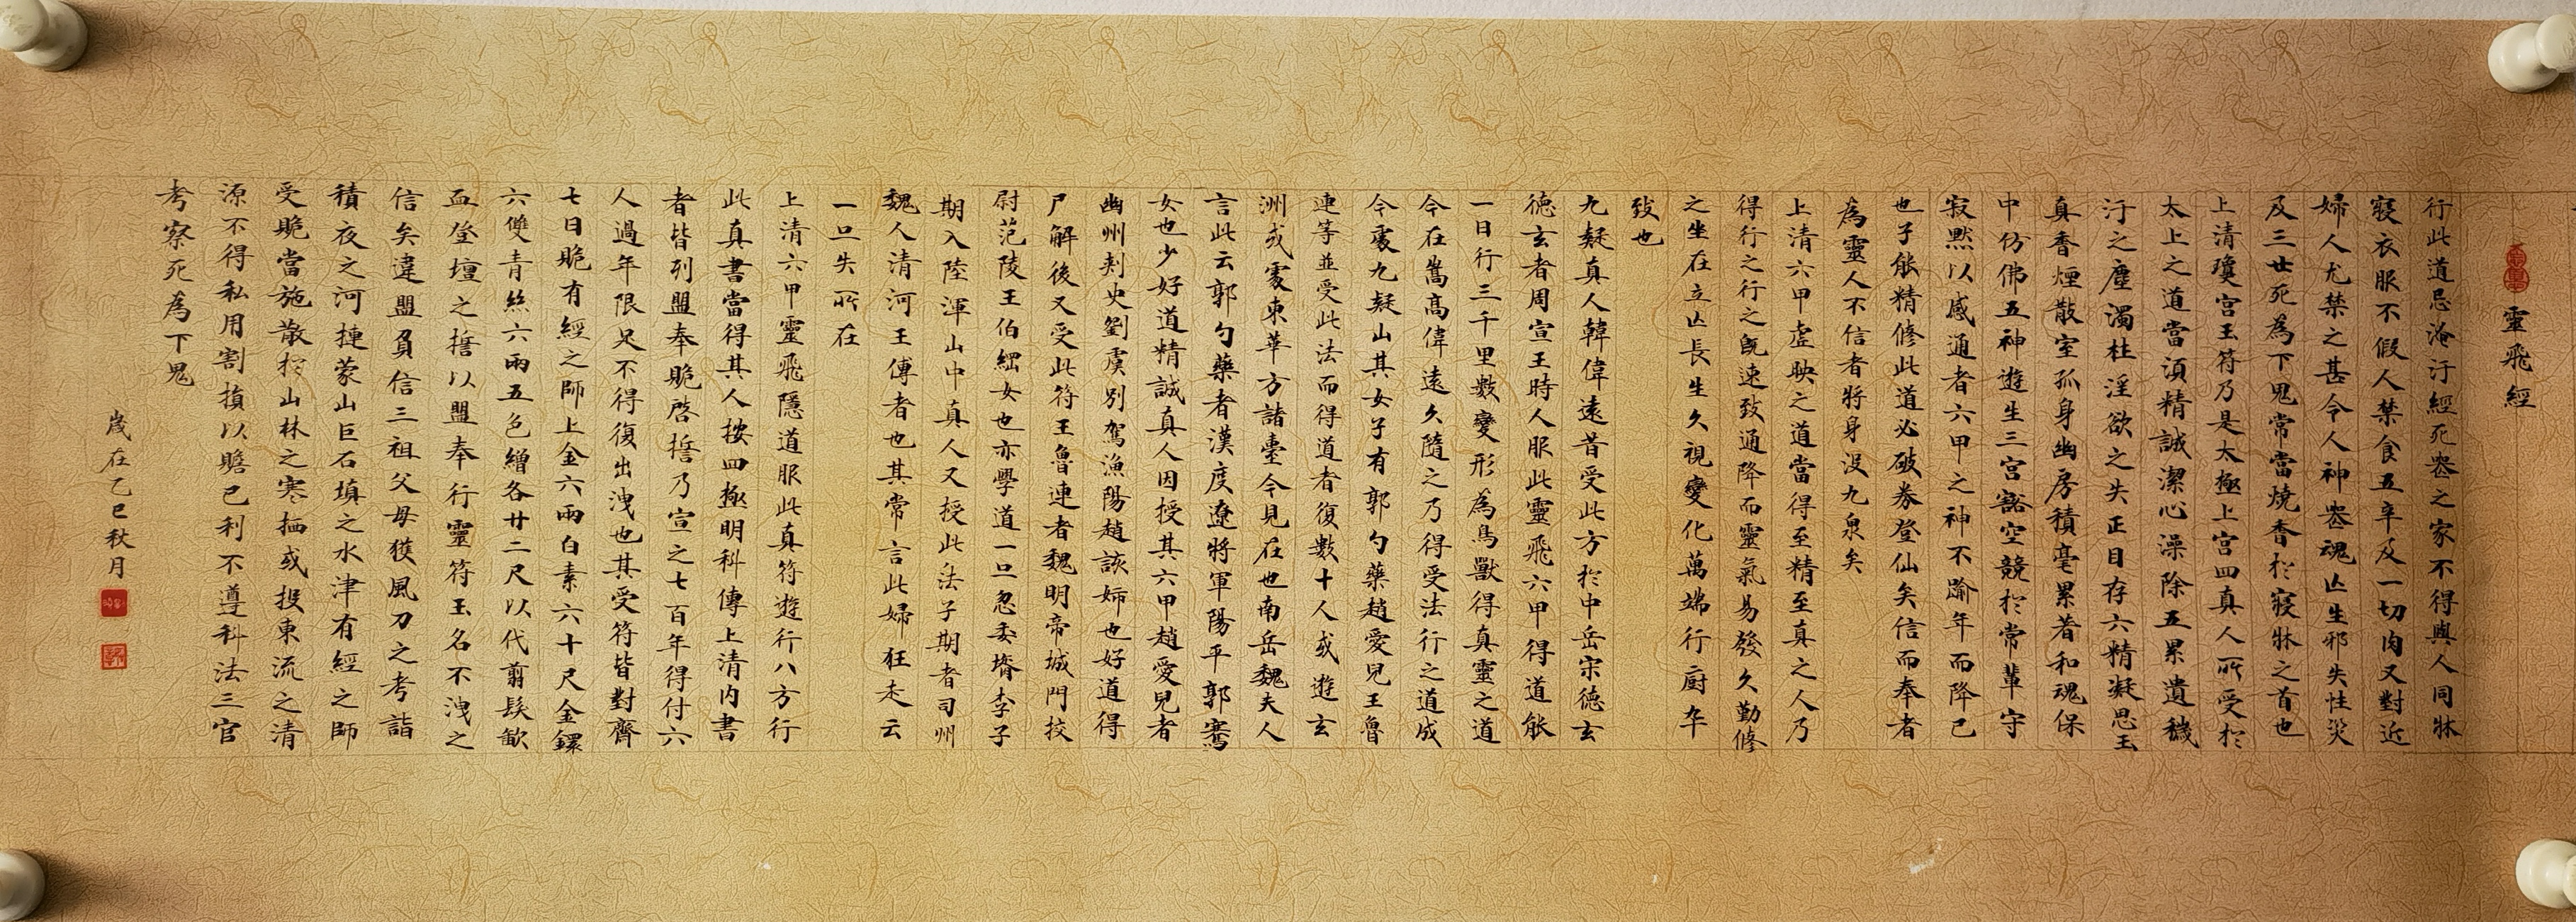 靈飛經
行此道忌淹汙經死喪之家不得與人同牀
寢衣服不假人禁食五辛及一切肉又對近
婦人尤禁之甚令人神喪魂亡生邪失性災
及三世死為下鬼常當燒香於寢牀之首也
上清瓊宮玉符乃是太極上宮四真人所受於
太上之道當須精誠潔心澡除五累遺穢
汙之塵濁杜淫欲之失正目存六精凝思玉
真香煙散室孤身幽房積毫累著和魂保
中仿佛五神遊生三宮豁空競於常輩守
寂默以感通者六甲之神不踰年而降已
也子能精修此道必破券登仙矣信而奉者
為靈人不信者將身沒九泉矣
上清六甲虛映之道當得至精至真之人乃
得行之行之既速致通降而靈氣易發久勤修
之坐在立亡長生久視變化萬端行廚卒
致也
九疑真人韓偉遠昔受此方於中岳宋德玄
德玄者周宣王時人服此靈飛六甲得道能
一日行三千里數變形為鳥獸得真靈之道
今在嵩高偉遠久隨之乃得受法行之道成
今處九疑山其女子有郭勺藥趙愛兒王魯
連等並受此法而得道者復數十人或遊玄
洲或處東華方諸臺今見在也南岳魏夫人
言此云郭勺藥者漢度遼將軍陽平郭騫
女也少好道精誠真人因授其六甲趙愛兒者
幽州刺史劉虞別駕漁陽趙該姊也好道得
尸解後又受此符王魯連者魏明帝城門校
尉范陵王伯綱女也亦學道一旦忽委壻李子
期入陸渾山中真人又授此法子期者司州
魏人清河王傳者也其常言此婦狂走云
一旦失所在
上清六甲靈飛隱道服此真符遊行八方行
此真書當得其人按四極明科傳上清內書
者皆列盟奉貺啓誓乃宣之七百年得付六
人過年限足不得復出洩也其受符皆對齊
七日貺有經之師上金六兩白素六十尺金鐶
六雙青絲六兩五色繒各廿二尺以代翦髮歃
血登壇之誓以盟奉行靈符玉名不洩之
信矣違盟負信三祖父母獲風刀之考詣
積夜之河摙蒙山巨石填之水津有經之師
受貺當施散於山林之寒栖或投東流之清
源不得私用割損以贍己利不遵科法三官
考察死為下鬼
歲在乙巳秋月